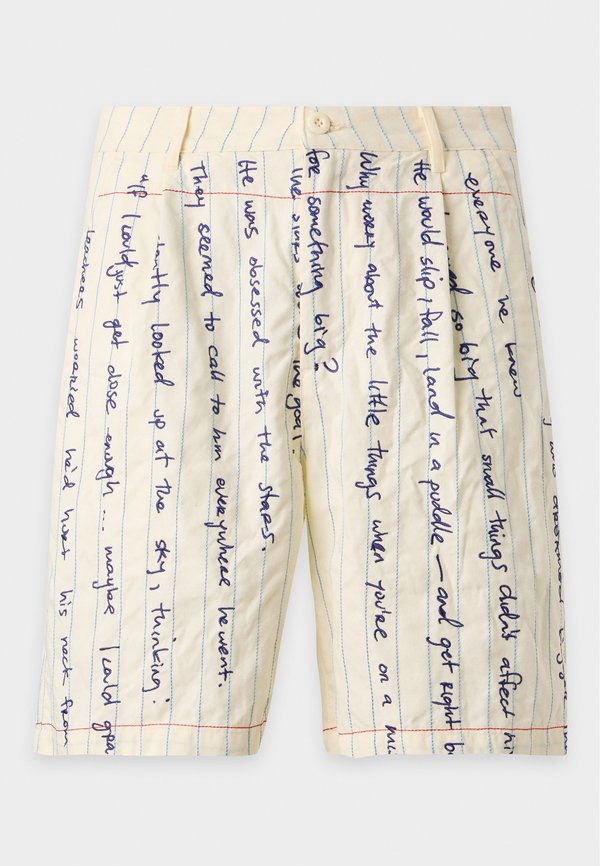 who dreamed bigger
everyone he knew
so big that small things didn't affect
He would slip, fall, land in a puddle — and get right
Why worry about the little things when you're on a
for something big?
the goal.
He was obsessed with the stars.
They seemed to call to him everywhere he went.
looked up at the sky, thinking:
If I could just get close enough... maybe I could
teachers worried he'd hurt his neck from